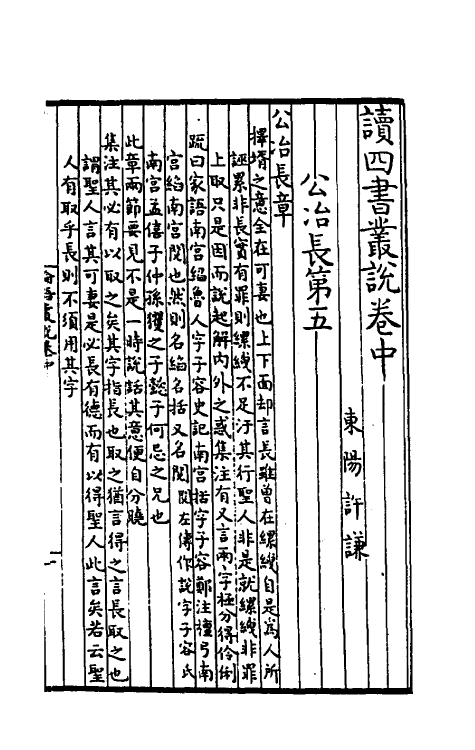 讀四書叢說卷中
東陽許謙
公冶長第五
公冶長章
擇壻之意全在可妻也上下面却言長雖曾在縲絏自是爲人所
誣累非長實有罪則縲絏不足汙其行聖人非是就縲絏非罪
上取只是因而說起解內外之惑集注有又言兩字極分得伶俐
疏曰家語南宮縚魯人字子容史記南宮括字子容鄭注檀弓南
宮縚南宮閱也然則名縚名括又名閱閱左傳作說字子容氏
南宮孟僖子仲孫貜之子懿子何忌之兄也
此章兩節要見不是一時說話其意便自分曉
集注其必有以取之矣其字指長也取之猶言得之言長取之也
謂聖人言其可妻是必長有德而有以得聖人此言矣若云聖
人有取乎長則不須用其字
論語叢說卷中
一